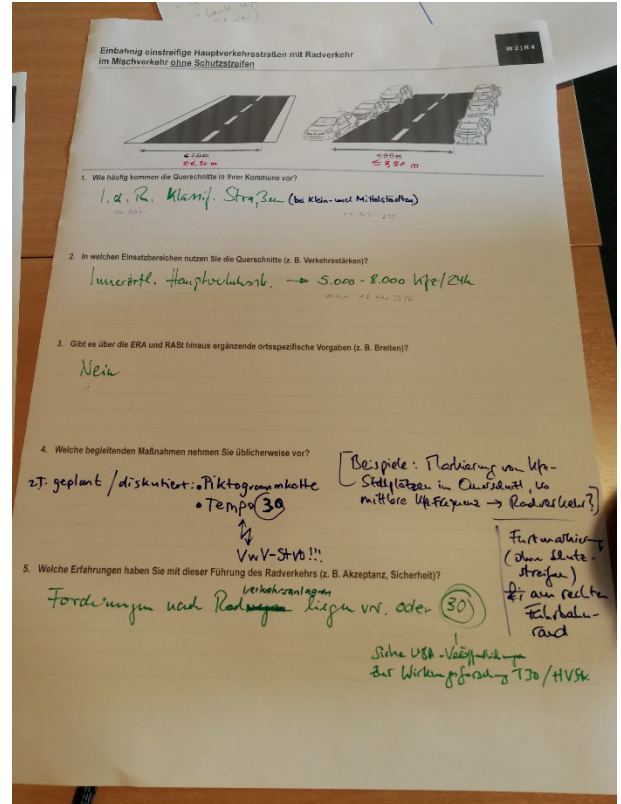 Einbahnig einstreifige Hauptverkehrsstraßen mit Radverkehr
im Mischverkehr ohne Schutzstreifen
W 2 | R 4
≤ 7,0 m
≤ 6,50 m
≤ 8,50 m
1. Wie häufig kommen die Querschnitte in Ihrer Kommune vor?
I. d. R. Klassif. Straßen (bei Klein- und Mittelstädten)
2. In welchen Einsatzbereichen nutzen Sie die Querschnitte (z. B. Verkehrsstärken)?
Innerörtl. Hauptverkehrsstr. → 5.000 - 8.000 Kfz/24h
3. Gibt es über die ERA und RASt hinaus ergänzende ortsspezifische Vorgaben (z. B. Breiten)?
Nein
4. Welche begleitenden Maßnahmen nehmen Sie üblicherweise vor?
z.T. geplant / diskutiert: • Piktogrammkette
• Tempo 30
VwV-StVO!!!
[Beispiele: Markierung von Kfz-
Stellplätzen im Querschnitt, wo
mittlere Kfz Frequenz → Radverkehr?]
Furtmarkierung
(ohne Schutz-
streifen)
für am rechten
Fahrbahn-
rand
5. Welche Erfahrungen haben Sie mit dieser Führung des Radverkehrs (z. B. Akzeptanz, Sicherheit)?
Forderungen nach Radverkehrsanlagen liegen vor, oder 30
Siehe UBA-Veröffentlichungen
zur Wirkungsforschung T30/HVStr.